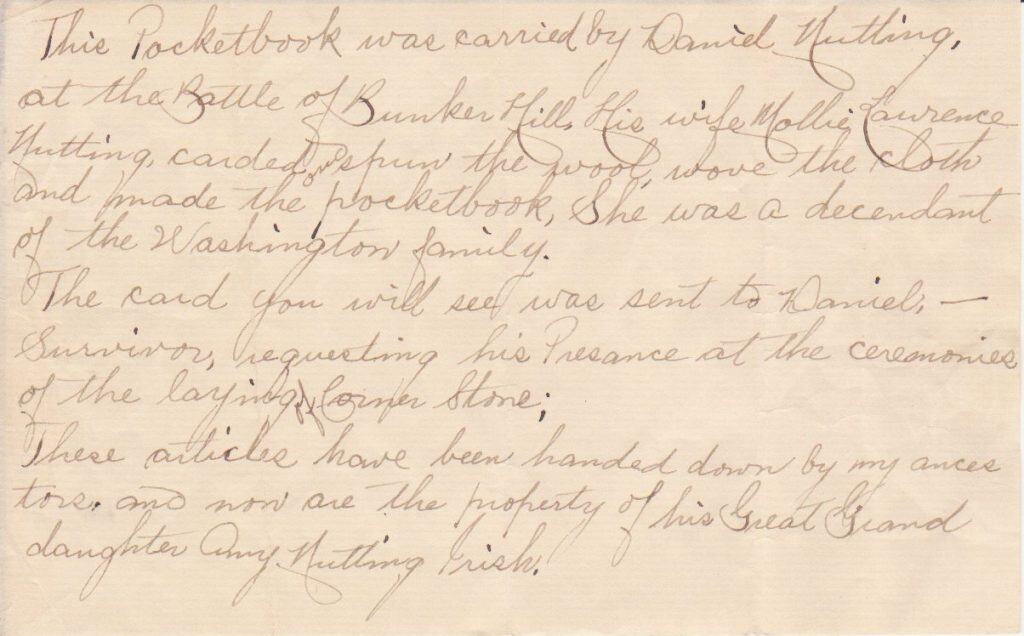 This Pocketbook was carried by Daniel Nutting,
at the Battle of Bunker Hill. His wife Mollie Lawrence
Nutting, carded and spun the wool, wove the cloth
and made the pocketbook, She was a decendant
of the Washington family.
The card you will see was sent to Daniel, —
Survivor, requesting his Presance at the ceremonies
of the laying of Corner Stone;
These articles have been handed down by my ances
tors. and now are the property of his Great Grand
daughter Amy Nutting Irish.